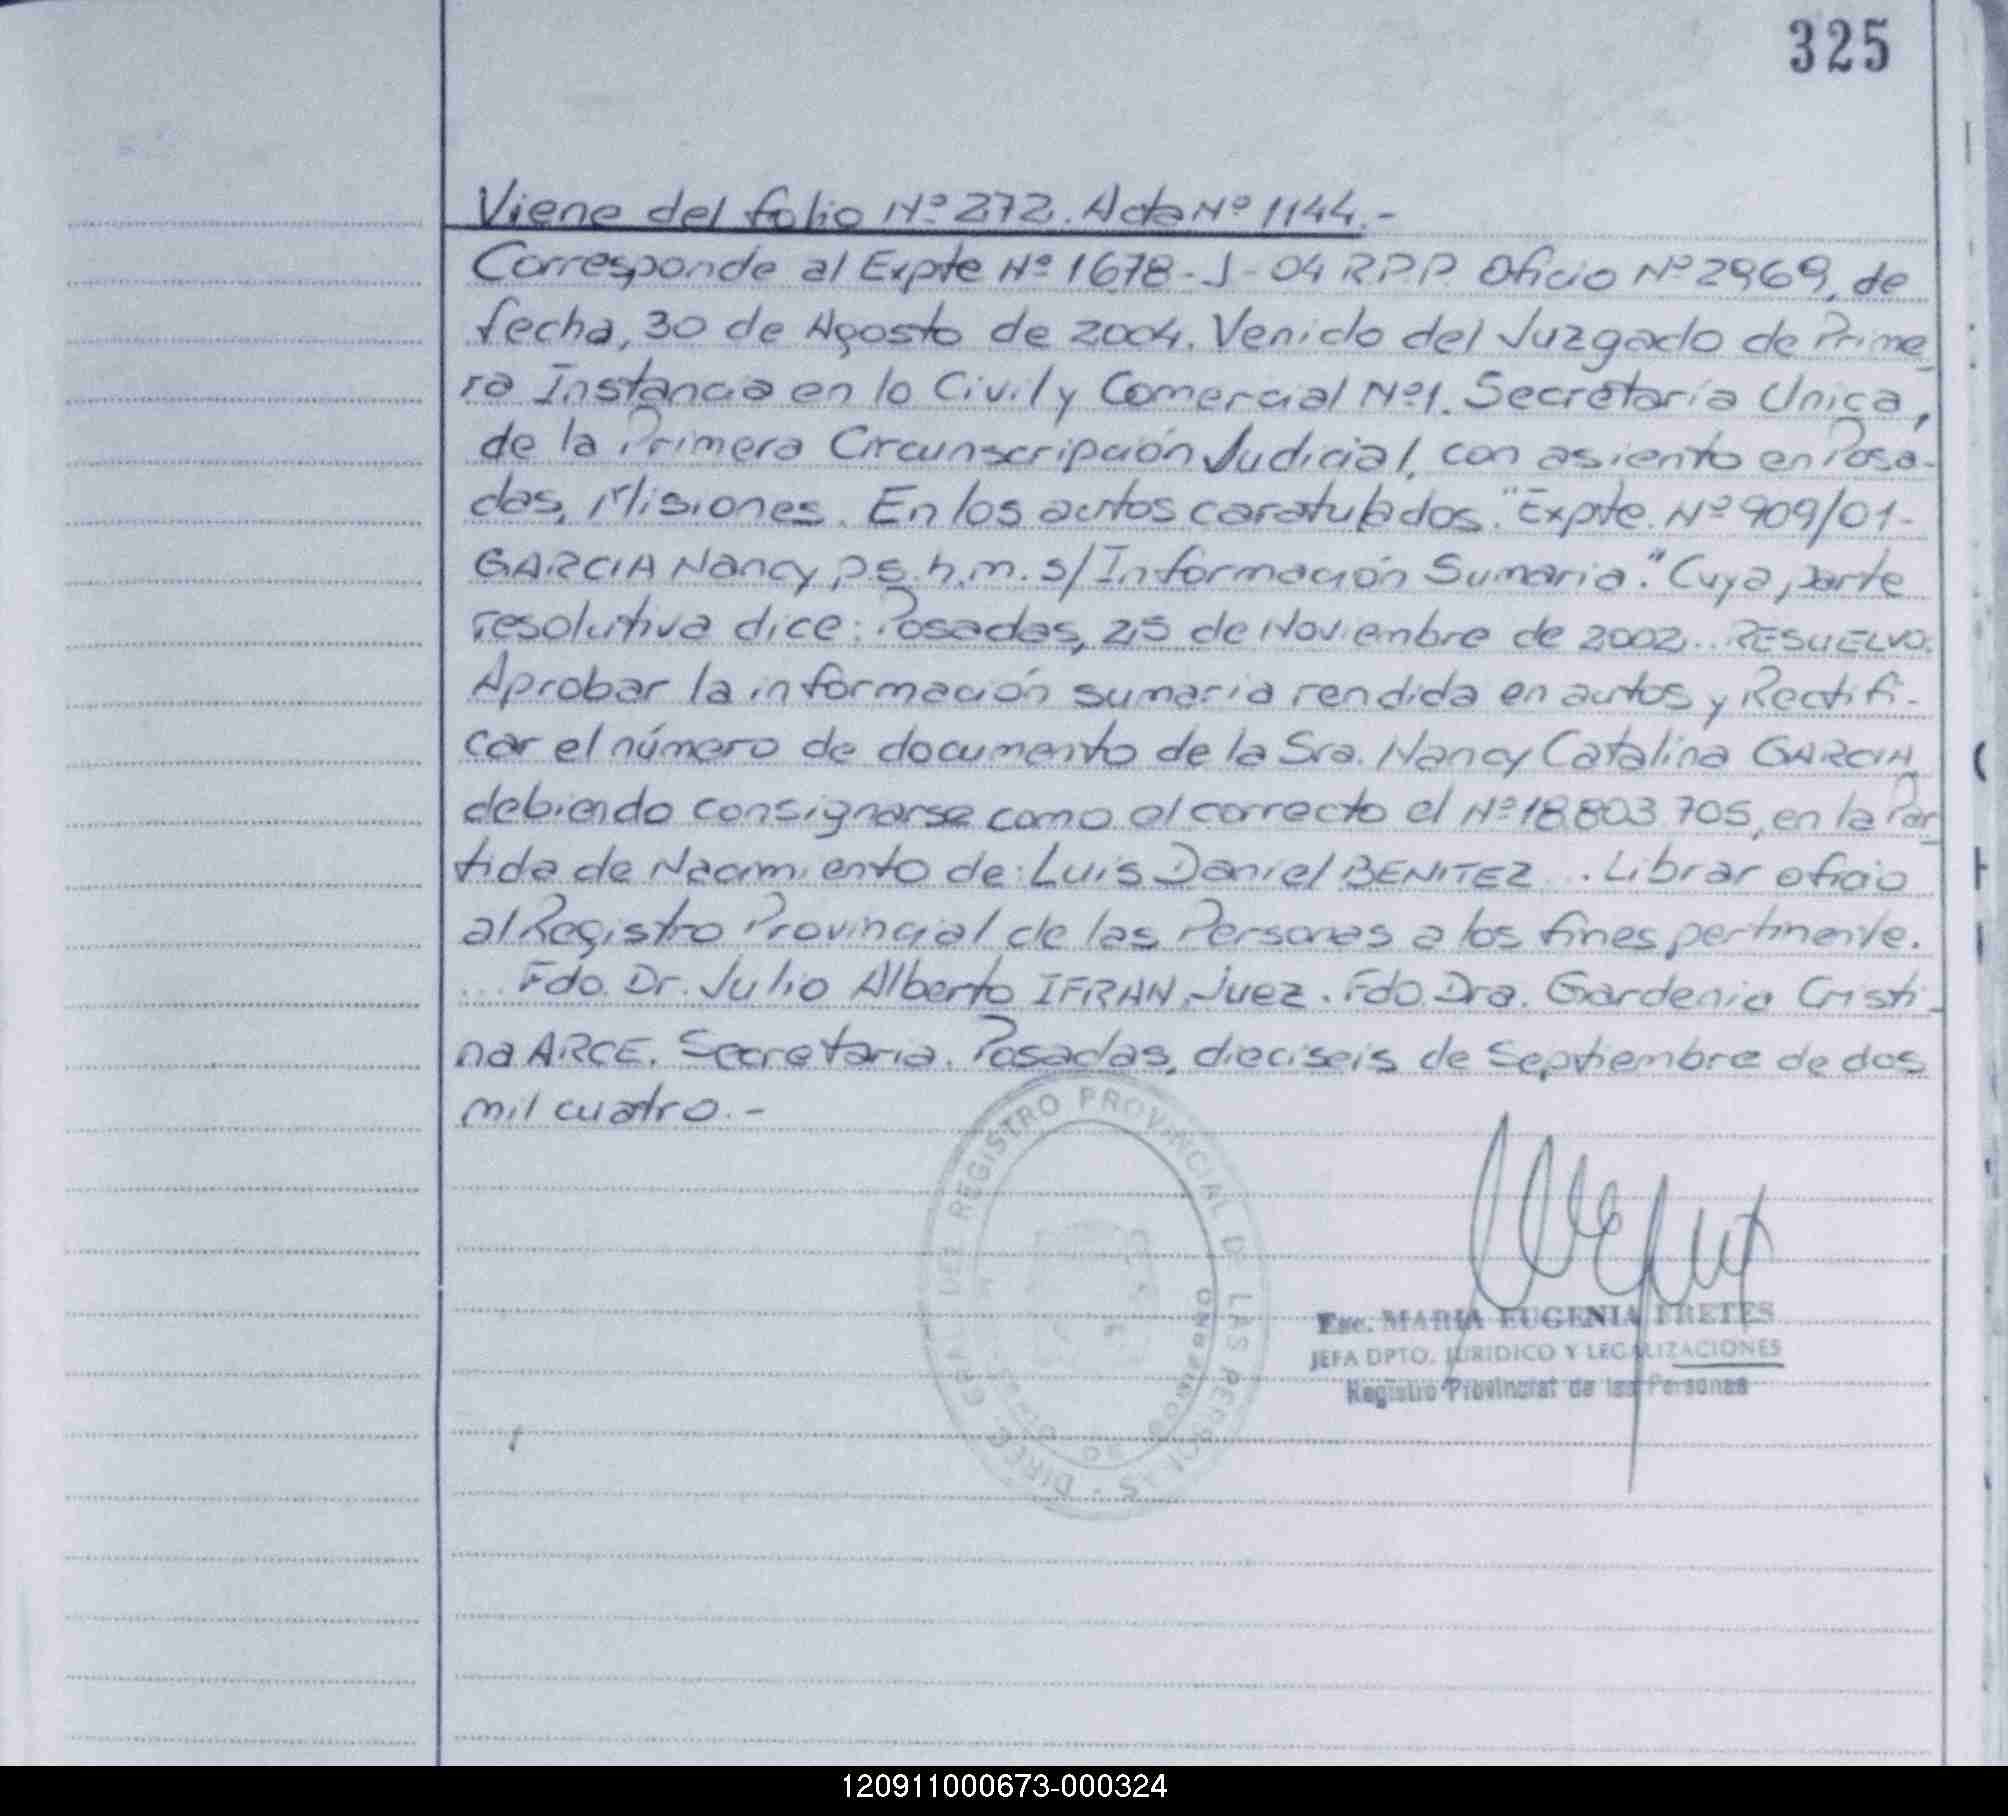 325
Viene del folio Nº 272. Acta Nº 1144.-
Corresponde al Expte Nº 1678-J-04 R.P.P. Oficio Nº 2969, de
fecha, 30 de Agosto de 2004. Venido del Juzgado de Prime-
ra Instancia en lo Civil y Comercial Nº1. Secretaría Unica,
de la Primera Circunscripción Judicial, con asiento en Posa-
das, Misiones. En los autos caratulados. "Expte. Nº 909/01-
GARCIA Nancy p.s.h.m. s/Información Sumaria." Cuya parte
resolutiva dice: Posadas, 25 de Noviembre de 2002... RESUELVO:
Aprobar la información sumaria rendida en autos y Rectifi-
car el número de documento de la Sra. Nancy Catalina GARCIA,
debiendo consignarse como el correcto el Nº 18.803.705, en la Par-
tida de Nacimiento de: Luis Daniel BENITEZ... Librar oficio
al Registro Provincial de las Personas a los fines pertinente.
... Fdo. Dr. Julio Alberto IFRAN, Juez. Fdo. Dra. Gardenia Cristi-
na ARCE. Secretaria. Posadas, dieciseis de Septiembre de dos
mil cuatro.-
REGISTRO PROVINCIAL DE LAS PERSONAS
Esc. MARIA EUGENIA FRETES
JEFA DPTO. JURIDICO Y LEGALIZACIONES
Registro Provincial de las Personas
120911000673-000324